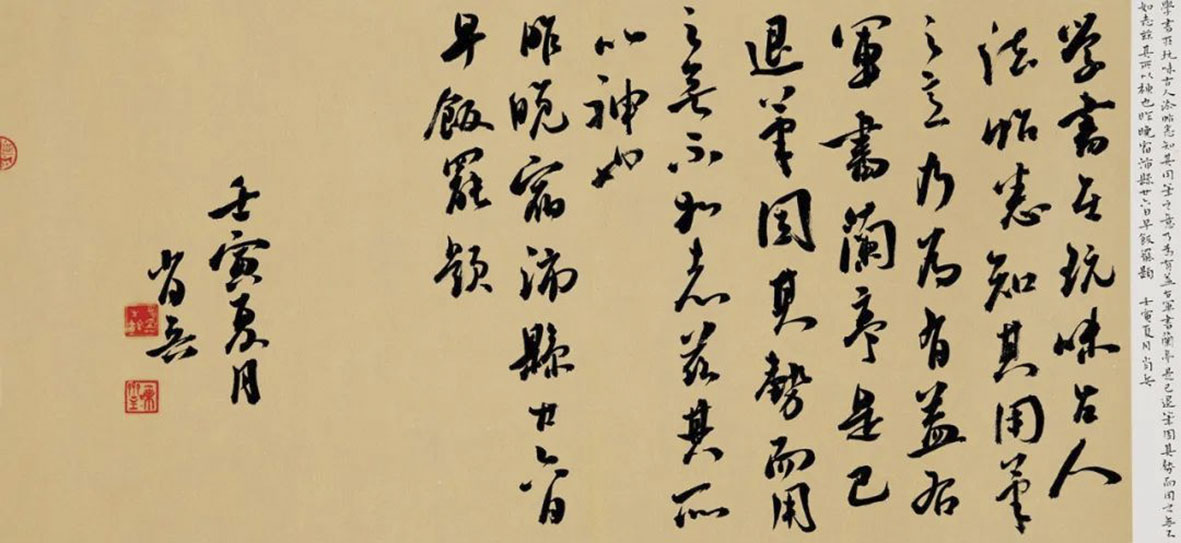 學書在玩味古人法帖悉知其用筆之意乃為有益右軍書蘭亭是已退筆因其勢而用之無不
如志茲其所以神也昨晚宿沛縣廿六日早飯罷題 壬寅夏月肖
學書在玩味古人
法帖悉知其用筆
之意乃為有益右
軍書蘭亭是已
退筆因其勢而用
之無不如志茲其所
以神也
昨晚宿沛縣廿六日
早飯罷題
壬寅夏月
肖